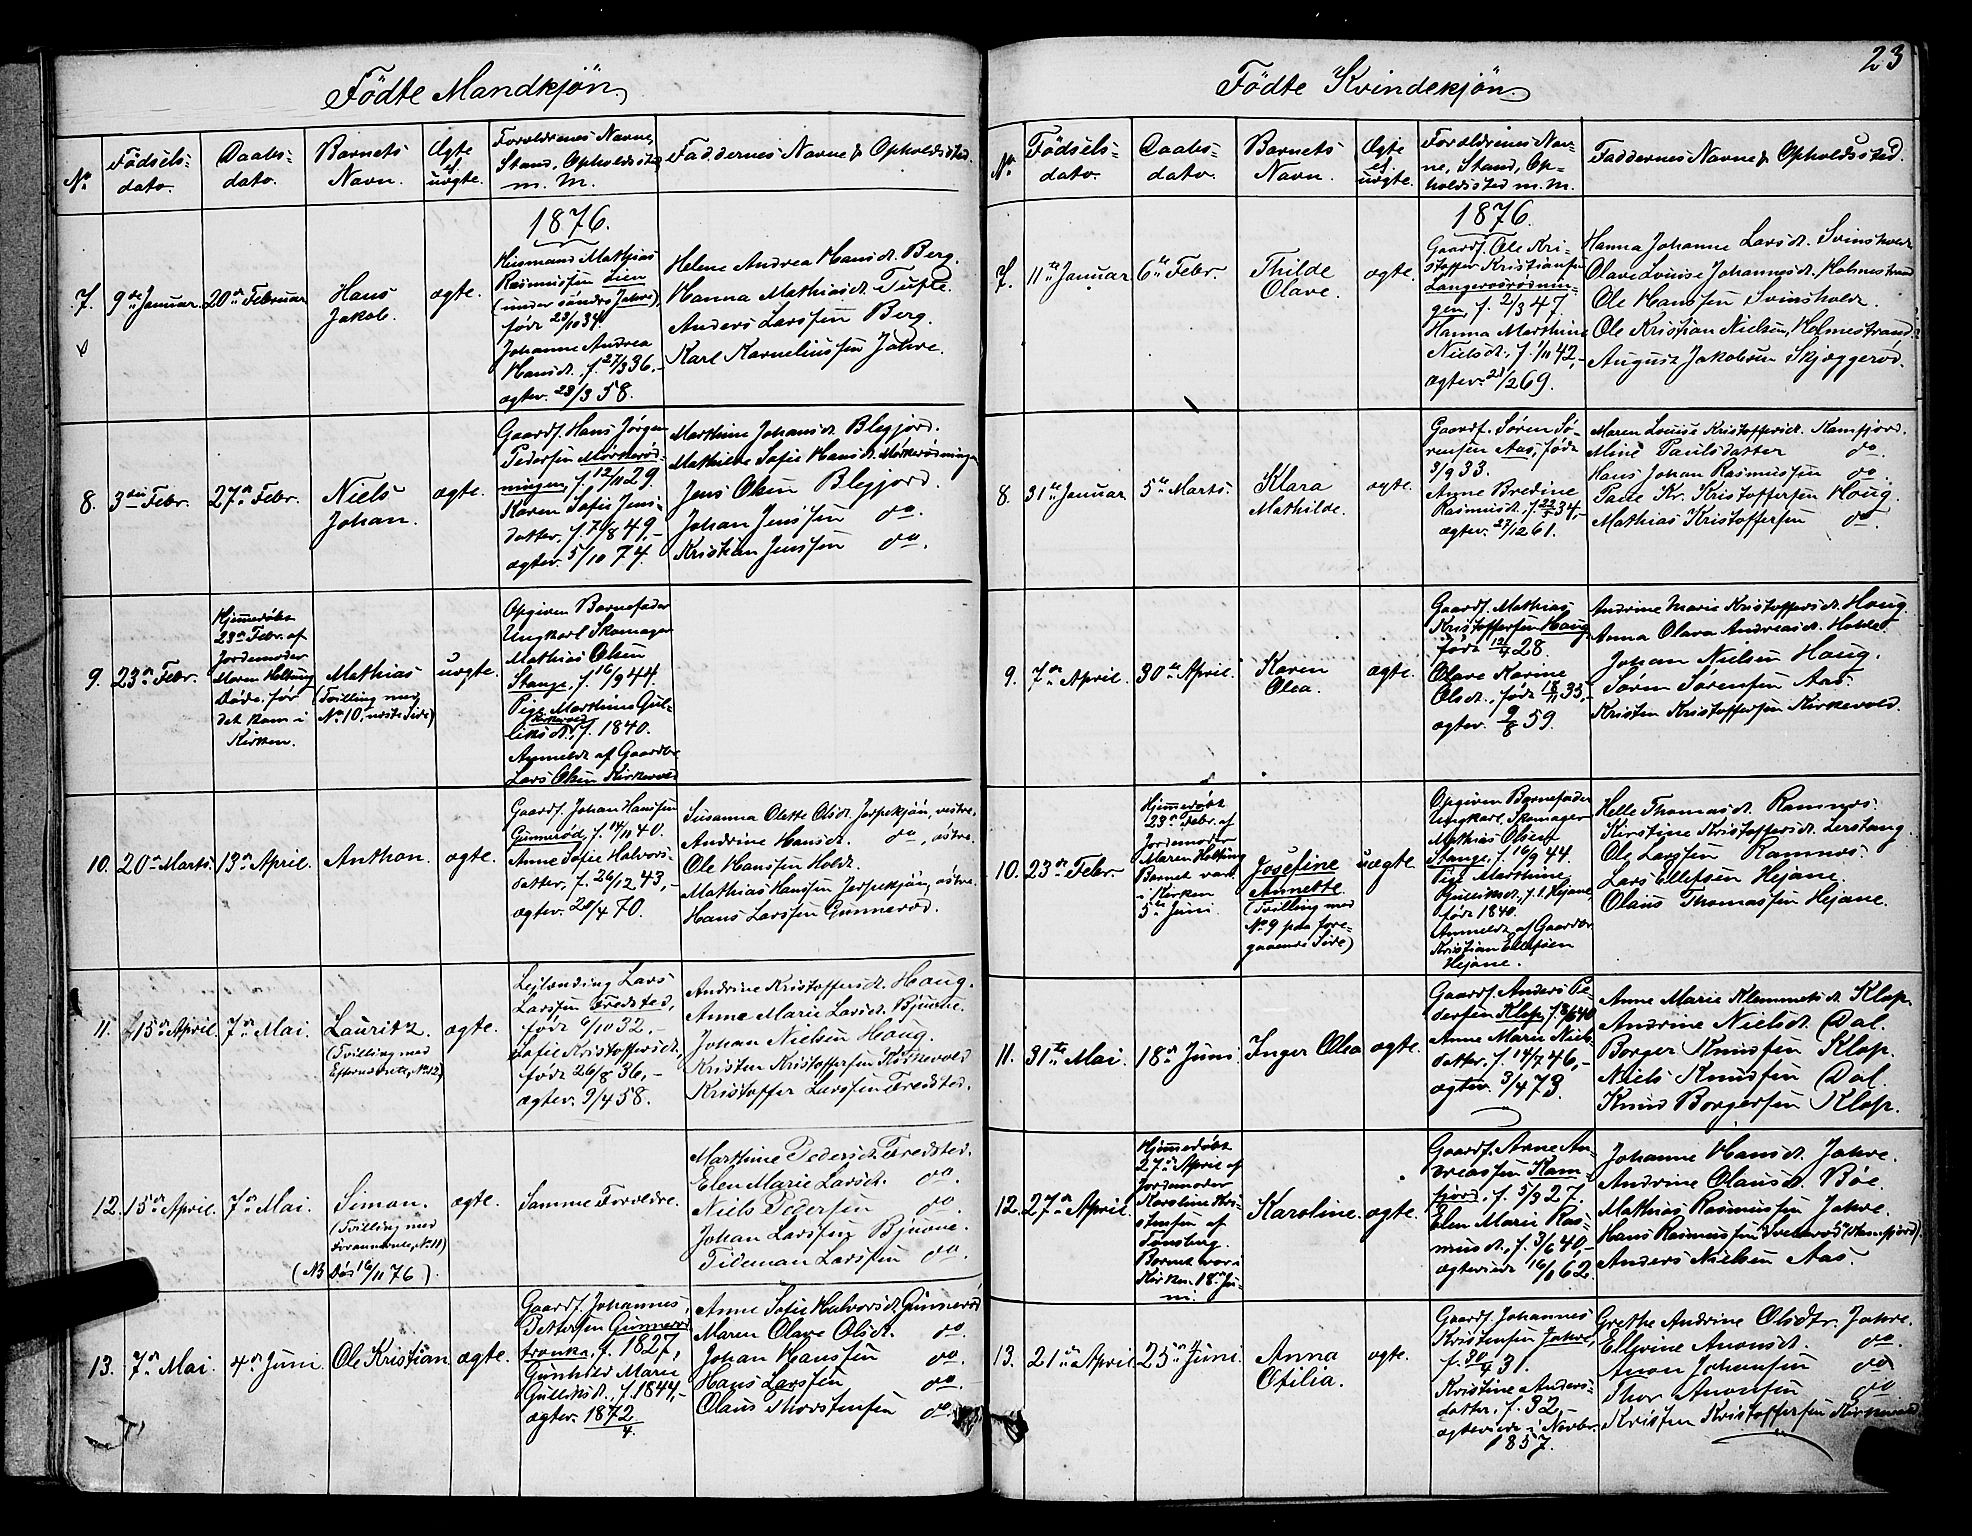 23
Födte Mandkjön
No
Födsels-
dato.
Daabs-
dato.
Barnets
Navn.
Ægte
el.
uægte.
Forældrenes Navne,
Stand, Opholdssted
m. M.
Faddernes Navne & Opholdssted.
1876.
7.
9de Januar.
20de Februar
Hans
Jakob.
ægte.
Husmand Mathias
Rasmussen Lien
(under søndre Jahre),
født 23/10 34.
Johanne Andrea
Hansdt., f. 27/3 36,-
ægtev. 28/3 58.
Helene Andrea Hansdt. Berg.
Hanna Mathiasdt. Tufte.
Anders Larssen Berg.
Karl Korneliussen Jahre.
8.
3die Febr.
27de Febr.
Niels
Johan.
ægte.
Gaardf. Hans Jörgen
Pedersen Mørkerød-
ningen, f. 12/11 29.
Karen Sofie Jens-
datter, f. 7/8 49,-
ægtev. 5/10 74.
Marthine Johansdt. Blegjord.
Mathilde Sofie Hansdt. Mørkerødningen
Jens Olsen Blegjord.
Johan Jenssen do.
Kristian Jenssen do.
9.
23de Febr.
Hjemmedøbt
23de Febr. af
Jordemoder
Maren Holtung
Døde før
det kom i
Kirken.
Mathias
(Tvilling med
No 10, næste Side)
uægte.
Opgiven Barnefader
Ungkarl Skomager
Mathias Olsen
Stange, f. 16/9 44.
Pige Marthine Gul-
Kirkevold
liksdt., f. 1840.
Anmeldt af Gaardbr.
Lars Olsen Kirkevold
10.
20de Marts
13de April.
Anthon.
ægte.
Gaardf. Johan Hanssen
Gunnerød, f. 14/11 40.
Anne Sofie Halvors-
datter, f. 26/12 43,-
ægtev. 20/4 70.
Susanna Olette Olsdt. Jerpekjön, vestre.
Andrine Hansdt. do, østre.
Ole Hanssen Holdt.
Mathias Hanssen Jerpekjön, østre.
Hans Larssen Gunnerød.
11.
15de April.
7de Mai.
Lauritz.
(Tvilling med
Efternævnte, No 12)
ægte.
Lejlænding Lars
Larssen Fredsted,
født 6/10 32,-
Sofie Kristoffersdt.,
født 26/8 36,-
ægtev. 9/4 58.
Andrine Kristoffersdt. Haug.
Anne Marie Larsdt. Bjuone.
Johan Nielsen Haug.
Kristen Kristoffersen Kirkevold
Kristoffer Larssen Fredsted.
12.
15de April.
7de Mai.
Simon.
(Tvilling med
Forannævnte, No 11)
(NB Død 16/11 76).
ægte.
Samme Forældre.
Marthine Pedersdt. Fredsted.
Elen Marie Larsdt. do.
Niels Pedersen do.
Johan Larssen Bjuone.
Tideman Larssen do.
13.
7de Mai
4de Juni.
Ole Kristian
ægte.
Gaardf. Johannes
Pettersen Gunnerød
tranka, f. 1827,
Gunhild Marie
Gulliksdt., f. 1844,-
ægtev. 1872/4.
Anne Sofie Halvorsdt. Gunnerød
Maren Olave Olsdt. do.
Johan Hanssen do.
Hans Larssen do.
Olaus Thorstensen do.
Födte Kvindekjön
No
Födsels-
dato.
Daabs-
dato.
Barnets
Navn.
Ægte
el.
uægte.
Forældrenes Nav-
ne, Stand, Op-
holdssted m. M.
Faddernes Navne & Opholdssted.
1876.
7.
11te Januar
6te Febr.
Thilde
Olave.
ægte.
Gaardf. Ole Kri-
stoffer Kristiansen
Langerødrødnin-
gen, f. 2/3 47.
Hanna Marthine
Nielsdt., f. 1/11 42,-
ægtev. 21/12 69.
Hanna Johanne Larsdt. Svinsholdt
Olave Louise Johannesdt. Holmestrand
Ole Hanssen Svinsholdt.
Ole Kristian Nielsen, Holmestrand.
August Jakobsen Skjæggerød.
8.
31te Januar
5te Marts.
Klara
Mathilde.
ægte.
Gaardf. Søren Sø-
rensen Aas, født
3/9 33.
Anne Bredine
Rasmusdt. f. 22/5 34,-
ægtev. 27/12 61.
Maren Louise Kristoffersdt. Kamfjord.
Mine Paulsdatter do.
Hans Johan Rasmussen do.
Paul Kr. Kristoffersen Haug.
Mathias Kristoffersen do.
9.
7de April.
30te April.
Karen
Olea.
ægte.
Gaardf. Mathias
Kristoffersen Haug,
født 12/4 28.
Olave Karine
Olsdt., født 18/11 35,-
ægtev. 9/8 59.
Andrine Marie Kristoffersdt. Haug.
Anna Olava Andreasdt. Holdt.
Johan Nielsen Haug.
Søren Sørensen Aas.
Kristen Kristoffersen Kirkevold.
10.
23de Febr.
Hjemmedøbt
23de Febr. af
Jordemoder
Maren Holtung
Barnet var
i Kirken
5te Juni.
Josefine
Annette.
(Tvilling med
No 9 paa fore-
gaaende Side)
uægte.
Opgiven Barnefader
Ungkarl, Skomager
Mathias Olsen
Stange, f. 16/9 44.
Pige Marthine
Gulliksdt., f. i Hejane,
født 1840.
Anmeldt af Gaardbr.
Kristian Ellefsen
Hejane.
Helle Thomasdt. Ramnæs.
Kirstine Kristoffersdt. Lerstang.
Ole Larssen Ramnæs.
Lars Ellefsen Hejane.
Olaus Thomassen Hejane.
11.
31te Mai
18de Juni.
Inger Olea
ægte.
Gaardf. Anders Pe-
dersen Klop, f. 8/6 40
Anne Marie Niels-
datter, f. 14/7 46,-
ægtev. 3/4 73.
Anne Marie Klemmetsdt. Klop.
Andrine Nielsdt. Dal.
Borger Knudsen Klop.
Niels Knudsen Dal.
Knud Borgersen Klop.
12.
27de April
Hjemmedøbt
27de April af
Jordemoder
Karoline Kri-
stensen af
Tønsberg.
Barnet var i
Kirken 18de Ju-
ni.
Karoline.
ægte.
Gaardf. Arne An-
dreassen Kam-
fjord, f. 5/3 27.
Elen Marie Ras-
musdt., f. 3/6 40,-
ægteviede 16/1 62.
Johanne Hansdt. Jahre.
Andrine Olausdt. Bøe.
Mathias Rasmussen Jahre.
Hans Rasmussen Tveterød (Kamfjord).
Anders Nielsen Aas.
13.
21de April
25de Juni.
Anna
Otilia.
ægte.
Gaardf. Johannes
Kristensen Jahre,
f. 30/4 31.
Kristine Anders-
datter, f. 32,-
ægteviede i Novbr.
1857.
Grethe Andrine Olsdtr. Jahre.
Ellevine Anonsdt. do.
Anon Johansen do
Thor Anonsen do
Kristen Kristoffersen Kirkevold